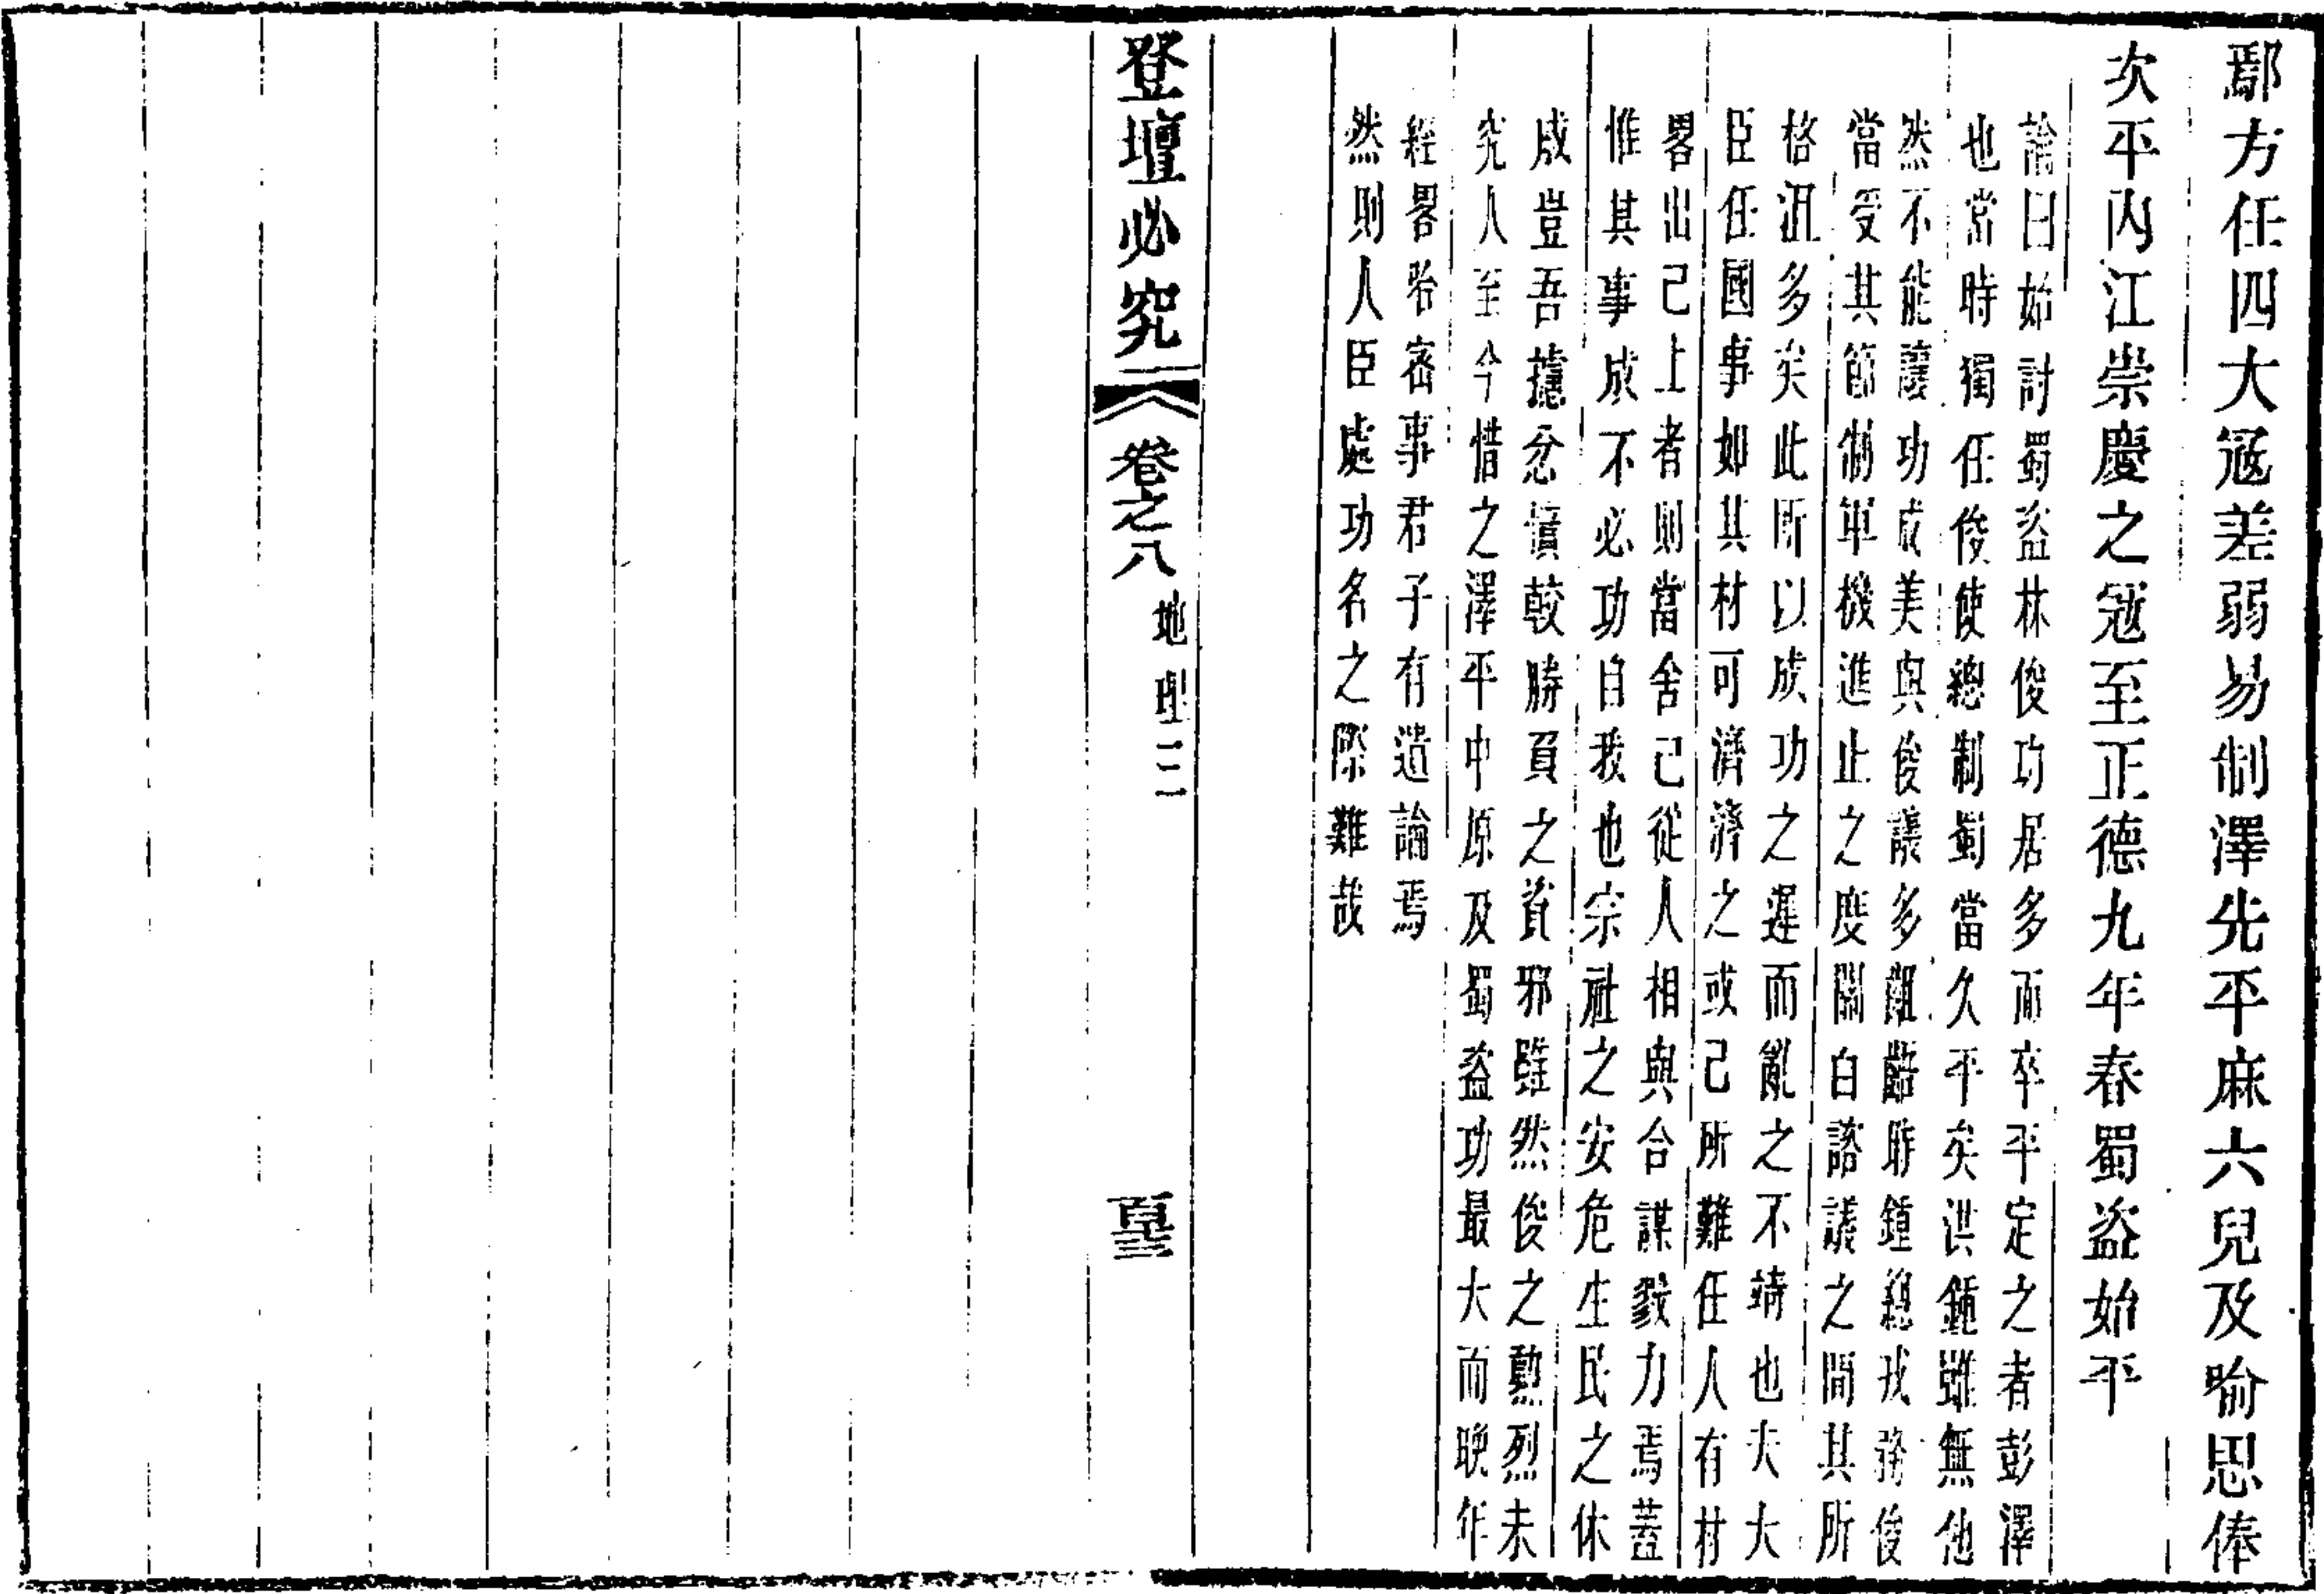 鄢方任四大冦差弱易制澤先平麻六兒及喻思俸
次平内江崇慶之冦至正德九年春蜀盗始平
論曰始討蜀盗林俊功居多而卒平定之者彭澤
也當時獨任俊使總制蜀當久平矣洪鍾雖無他
然不能讓功成美與俊議多齟齬時鍾總戎務俊
當受其節制軍機進止之度關白諮議之間其所
格沮多矣此所以成功之遲而亂之不靖也夫大
臣任國事如其材可濟濟之或己所難任人有材
畧出己上者則當舍己從人相與合謀戮力焉蓋
惟其事成不必功自我也宗社之安危生民之休
戚豈吾攄忿憤較勝負之資邪雖然俊之勳烈未
究人至今惜之澤平中原及蜀盗功最大而晚年
經畧哈密事君子有遺論焉
然則人臣處功名之際難哉
登壇必究 卷之八 地理三